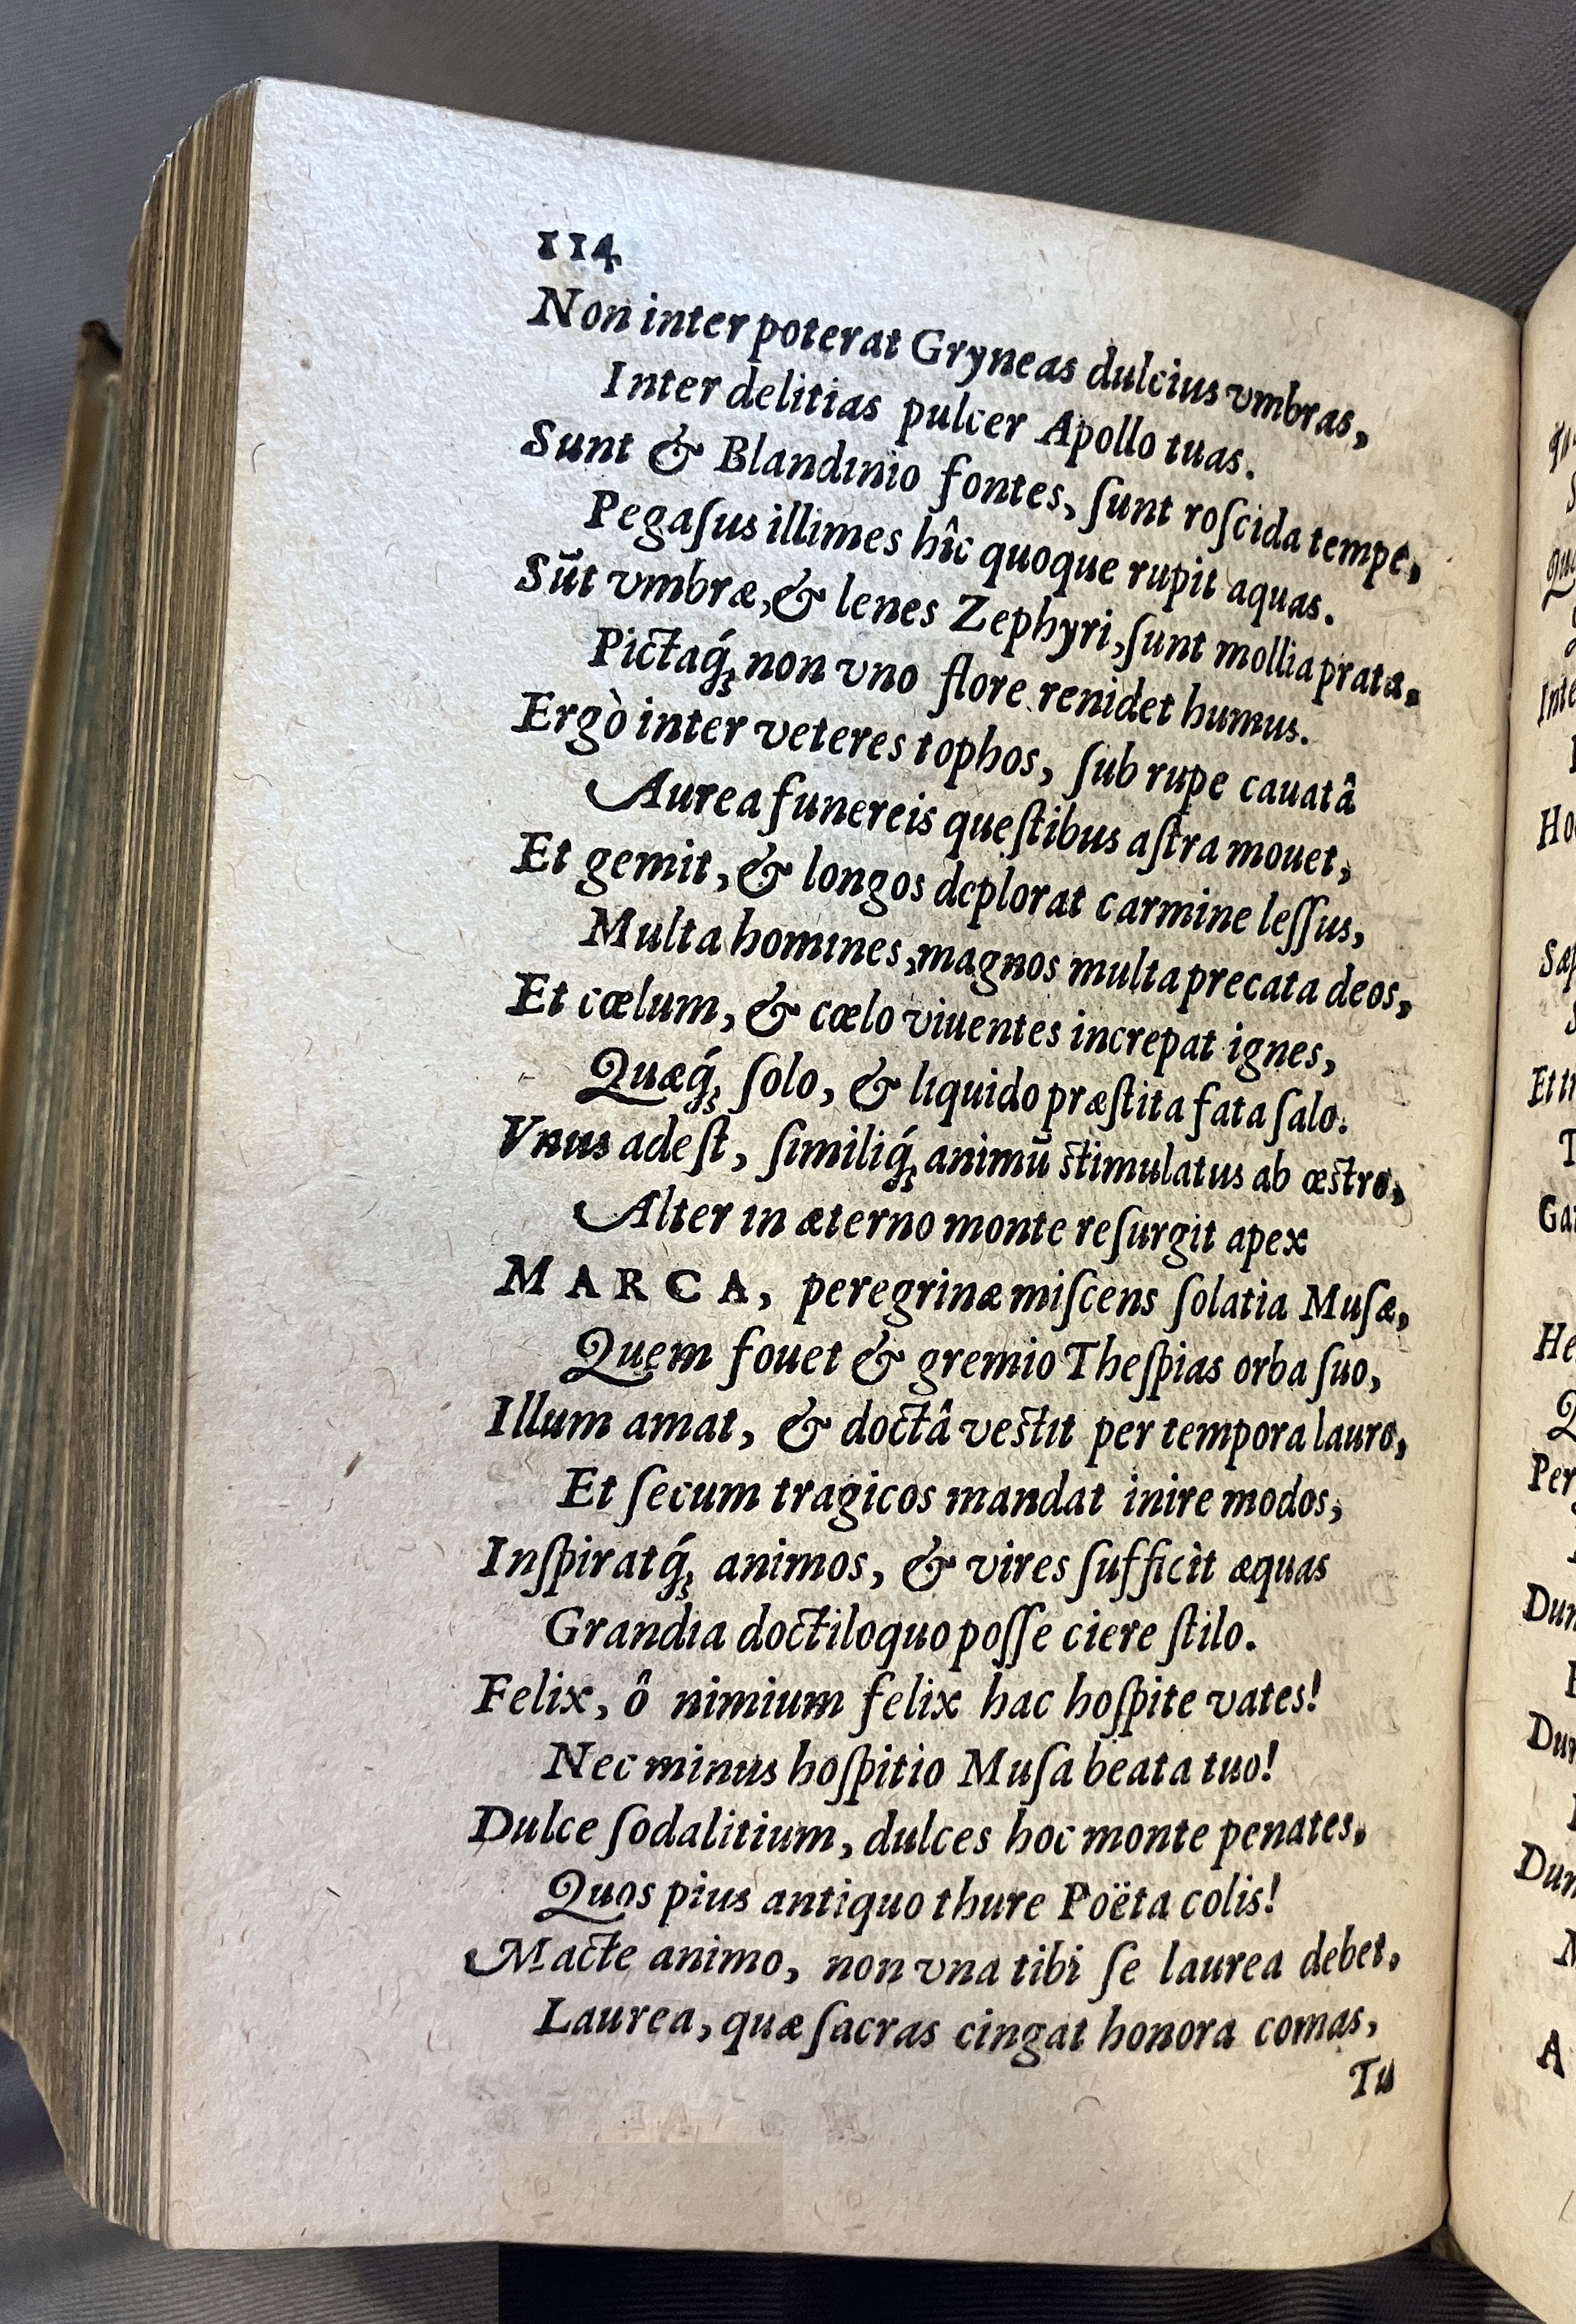 114
Non inter poterat Gryneas dulcius vmbras,
Inter delitias pulcer Apollo tuas.
Sunt & Blandinio fontes, ſunt roſcida tempe,
Pegaſus illimes hîc quoque rupit aquas.
Sūt vmbræ, & lenes Zephyri, ſunt mollia prata.
Pictaq́; non vno flore renidet humus.
Ergò inter veteres tophos, ſub rupe cauatâ
Aurea funereis queſtibus aſtra mouet,
Et gemit, & longos deplorat carmine leſſus,
Multa homines, magnos multa precata deos,
Et cœlum, & cœlo viuentes increpat ignes,
Quæq́; ſolo, & liquido præſtita fata ſalo.
Vnus adeſt, ſimiliq́; animū ſtimulatus ab œſtro,
Alter in æterno monte reſurgit apex
MARCA, peregrinæ miſcens ſolatia Muſæ,
Quem fouet & gremio Theſpias orba ſuo,
Illum amat, & doctâ veſtit per tempora lauro,
Et ſecum tragicos mandat inire modos,
Inſpiratq́; animos, & vires ſufficit æquas
Grandia doctiloquo poſſe ciere ſtilo.
Felix, ô nimium felix hac hoſpite vates!
Nec minus hoſpitio Muſa beata tuo!
Dulce ſodalitium, dulces hoc monte penates,
Quos pius antiquo thure Poëta colis!
Macte animo, non vna tibi ſe laurea debet,
Laurea, quæ ſacras cingat honora comas,
Tu